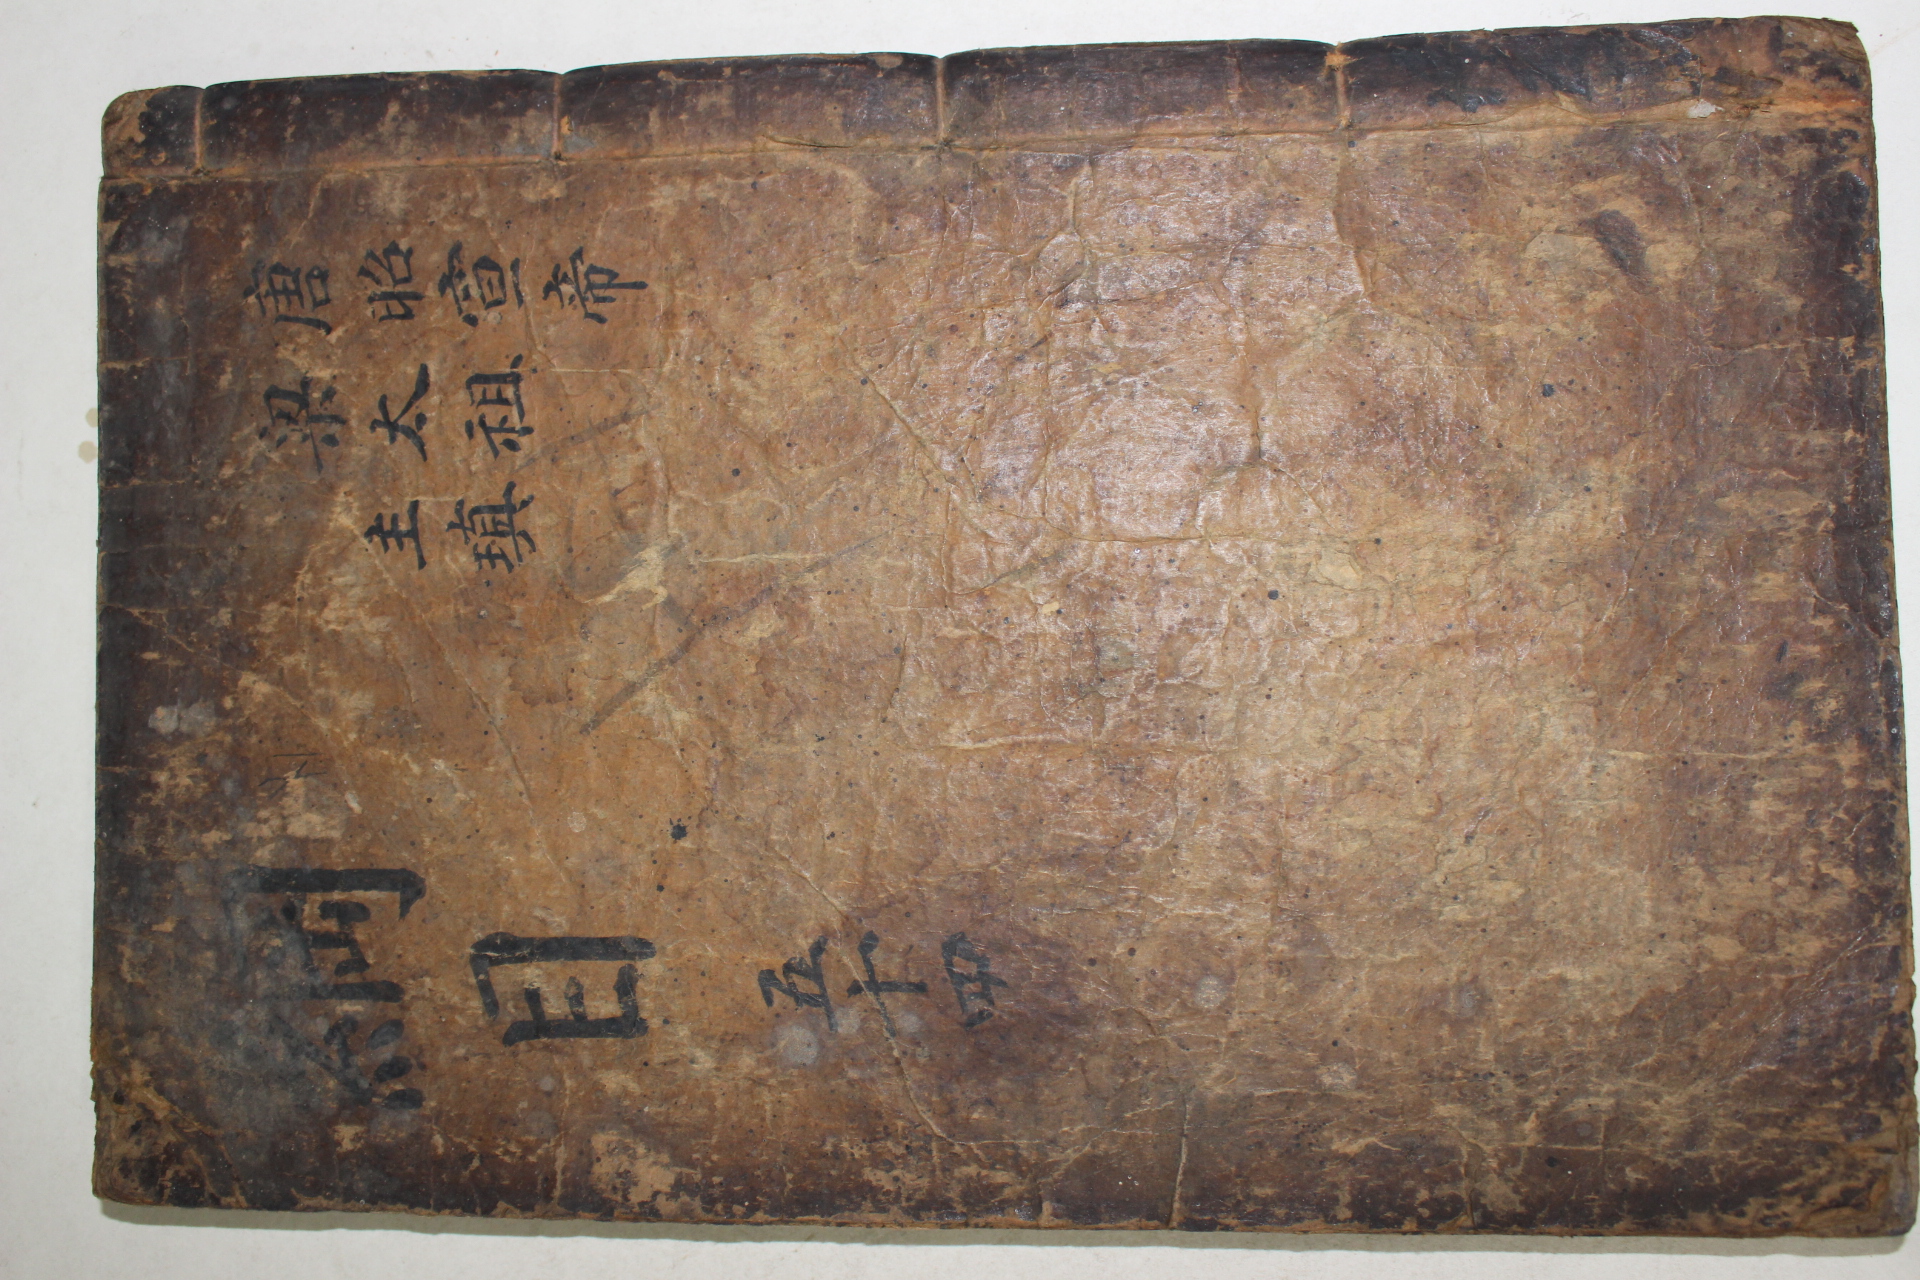 唐昭宣帝
梁太祖
主瑱
綱目 五十四